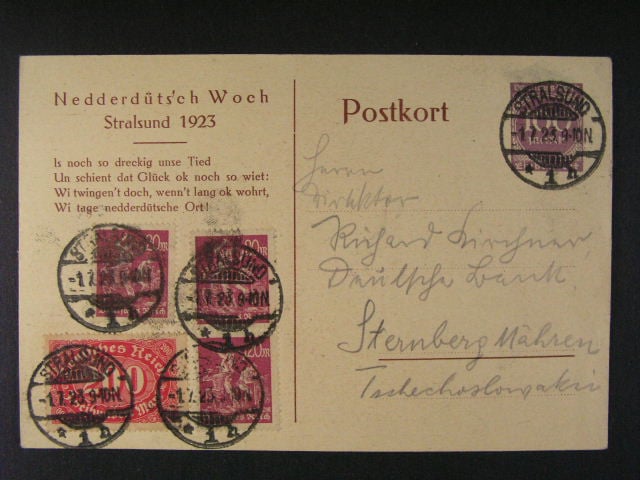 Nedderdüts'ch Woch
Stralsund 1923
Is noch so dreckig unse Tied
Un schient dat Glück ok noch so wiet:
Wi twingen't doch, wenn't lang ok wohrt,
Wi tage nedderdütsche Ort!
Postkort
100
STRALSUND
-1.7.23.9-10N.
* 1 h
Herrn
Direktor
Richard Kirchner
Deutsche Bank
Sternberg Mähren
Tschechoslowakei
STRALSUND
-1.7.23.9-10N.
* 1 h
20 m
STRALSUND
-1.7.23.9-10N.
* 1 h
20 m
Deutsches Reich
200
STRALSUND
-1.7.23.9-10N.
* 1 h
20 m
-1.7.23.9-10N.
* 1 h